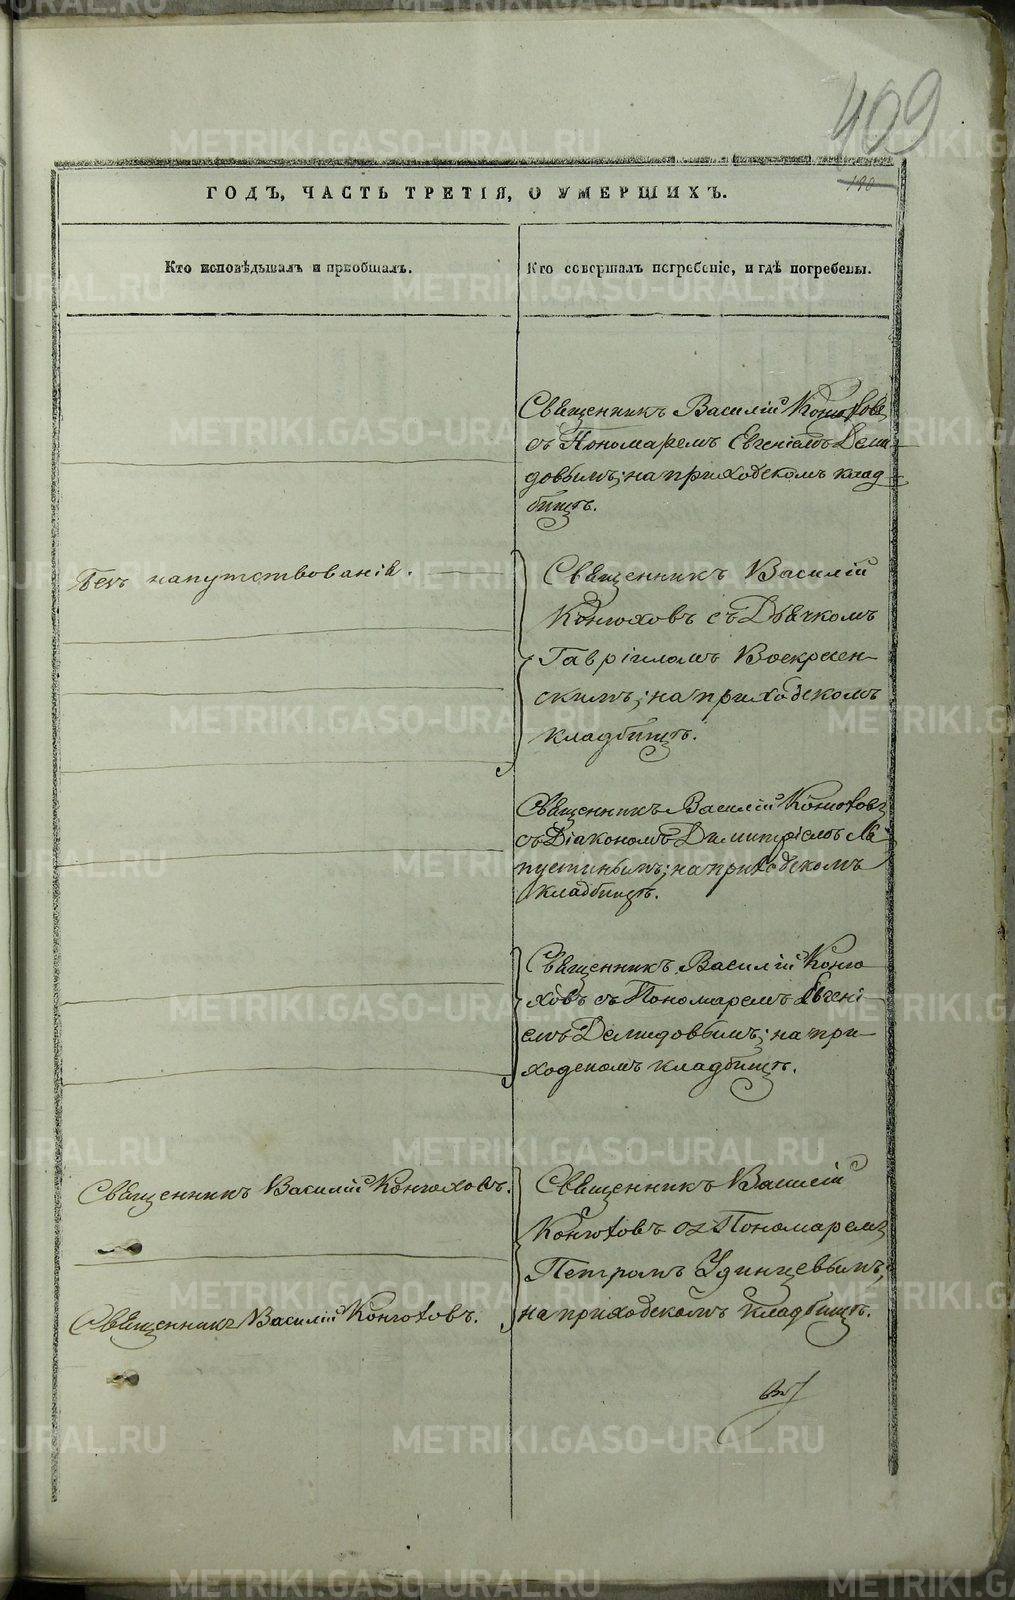 409
190
ГОДЪ, ЧАСТЬ ТРЕТІЯ, О УМЕРШИХЪ.
Кто исповѣдывалъ и пріобщалъ.
Кто совершалъ погребеніе, и гдѣ погребены.
Священникъ Василій Конюховъ
съ Пономаремъ Евгеніемъ Деми-
довымъ; на приходскомъ клад-
бищѣ.
Безъ напутствованія.
Священникъ Василій
Конюховъ съ Дьячкомъ
Гавріиломъ Воскресен-
скимъ; на приходскомъ
кладбищѣ.
Священникъ Василій Конюховъ
съ Діакономъ Димитріемъ Ла-
пустинымъ; на приходскомъ
кладбищѣ.
Священникъ Василій Коню-
ховъ съ Пономаремъ Евгені-
емъ Демидовымъ; на при-
ходскомъ кладбищѣ.
Священникъ Василій Конюховъ.
Священникъ Василій
Конюховъ съ Пономаремъ
Петромъ Удинцевымъ;
на приходскомъ кладбищѣ.
Священникъ Василій Конюховъ.
METRIKI.GASO-URAL.RU